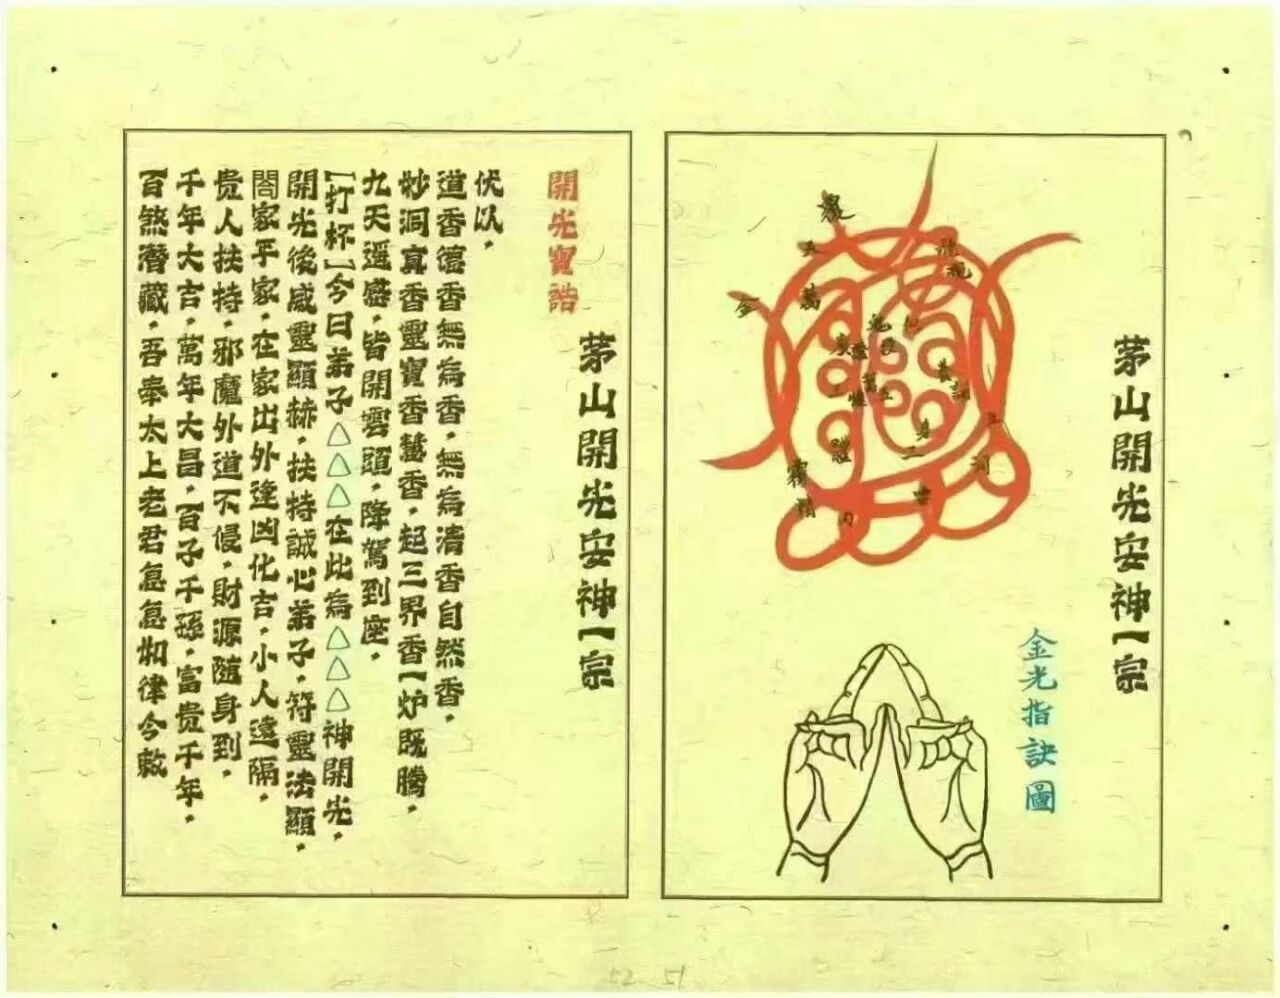 茅山開光安神一宗
金光指訣圖
金
萬
茅山開光安神一宗
開光寶誥
伏以，
道香德香無為香，無為清香自然香，
妙洞真香靈寶香慧香，起三界香一炉既騰，
九天遥感，皆開雲頭，降駕到座，
【打杯】今日弟子△△△在此為△△△神開光，
開光後威靈顯赫，扶持誠心弟子，符靈法顯，
閤家平家，在家出外逢凶化吉，小人遠隔，
贵人扶持，邪魔外道不侵，財源随身到，
千年大吉，萬年大昌，百子千孫，富贵千年，
百煞潛藏，吾奉太上老君急急如律令敕
52 51